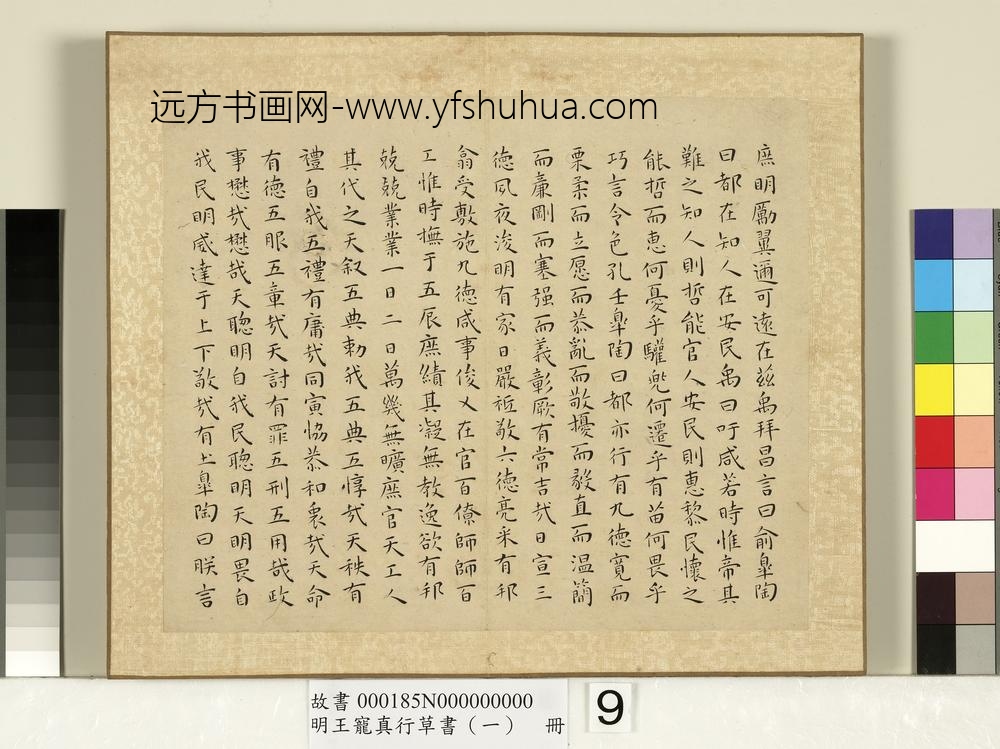 远方书画网-www.yfshuhua.com
庶明勵翼邇可遠在茲禹拜昌言曰俞臯陶
曰都在知人在安民禹曰吁咸若時惟帝其
難之知人則哲能官人安民則惠黎民懷之
能哲而惠何憂乎驩兜何遷乎有苗何畏乎
巧言令色孔壬臯陶曰都亦行有九德寬而
栗柔而立愿而恭亂而敬擾而毅直而温簡
而廉剛而塞强而義彰厥有常吉哉日宣三
德夙夜浚明有家日嚴祗敬六德亮采有邦
翕受敷施九德咸事俊乂在官百僚師師百
工惟時撫于五辰庶績其凝無教逸欲有邦
兢兢業業一日二日萬幾無曠庶官天工人
其代之天叙五典勑我五典五惇哉天秩有
禮自我五禮有庸哉同寅恊恭和衷哉天命
有德五服五章哉天討有罪五刑五用哉政
事懋哉懋哉天聰明自我民聰明天明畏自
我民明威達于上下敬哉有土臯陶曰朕言
故書 000185N000000000
明王寵真行草書（一） 冊
9